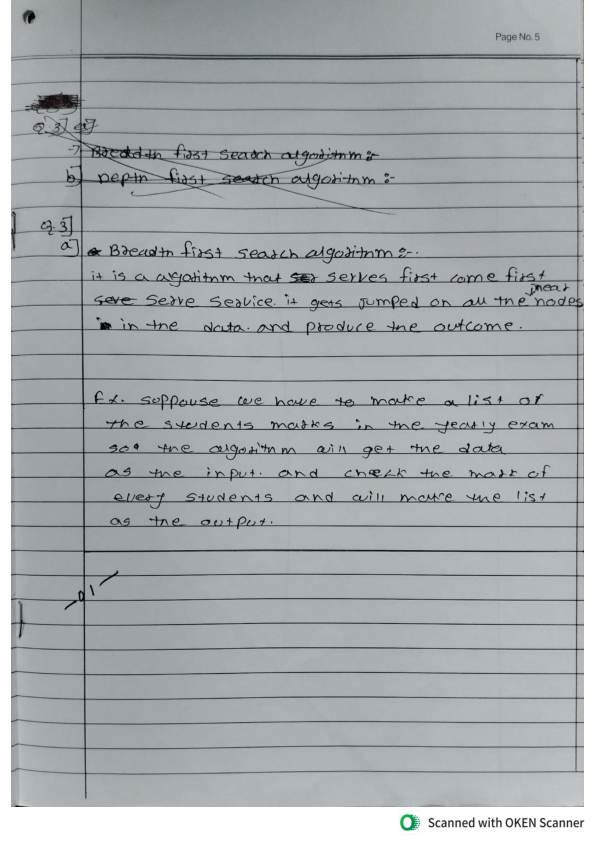 Page No. 5
Q.3] a]
→ Breadth first search algorithm :-
b] Depth first search algorithm :-
Q.3]
a] Breadth first search algorithm :-
it is a algorithm that serves first come first
seve serve service. it gets jumped on all the near nodes
in the data. and produce the outcome.
Ex. soppouse we have to make a list of
the students marks in the yearly exam
so the algorithm will get the data
as the input. and check the mark of
every students and will make the list
as the output.
Scanned with OKEN Scanner